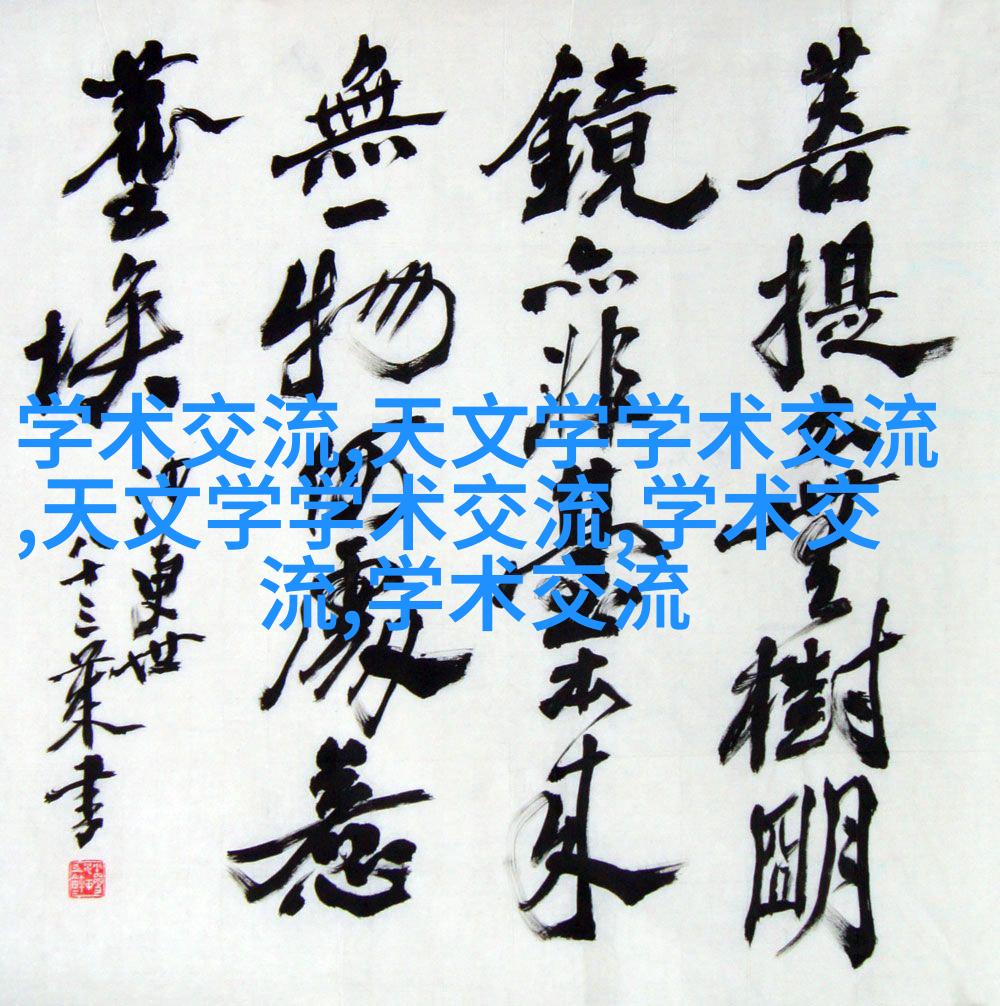 菩提本樹明
鏡亦非臺本來
無一物何處惹
塵埃
東世
八十三葉書
学术交流,天文学学术交流
,天文学学术交流,学术交
流,学术交流